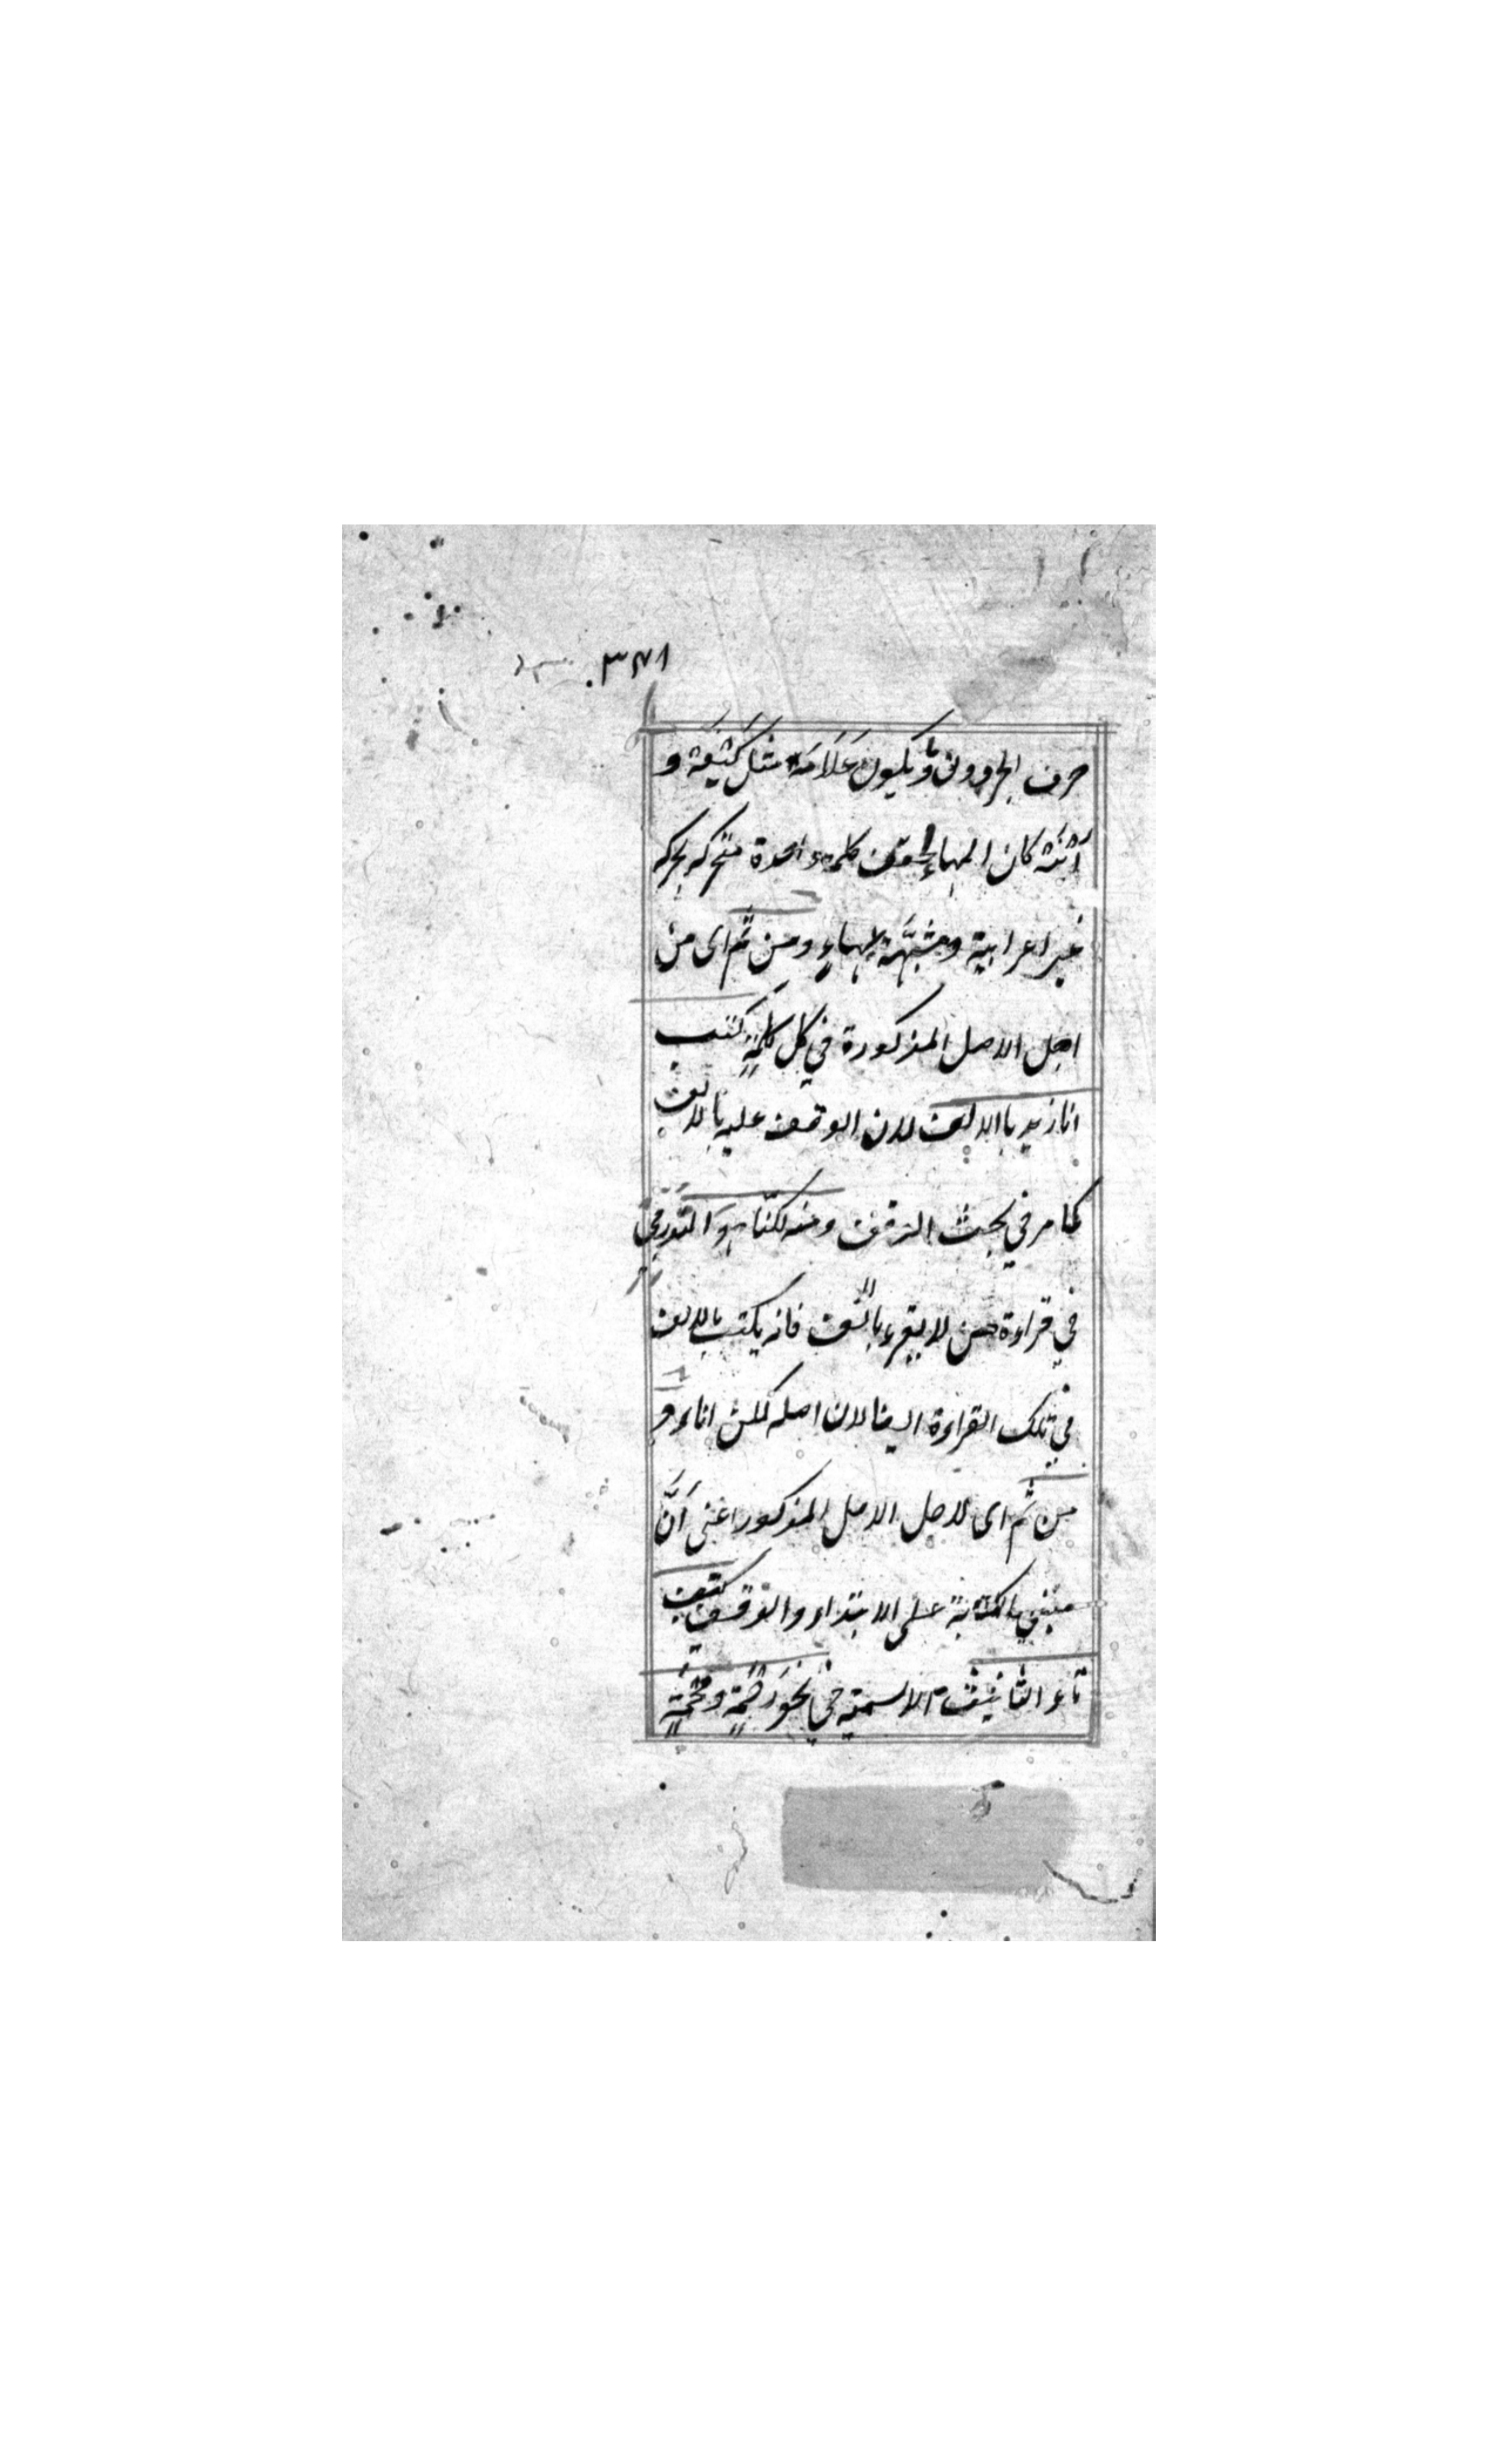 حرف الجر ون ويكون عَلَامَه مثل كَثِيفَة و
اَئِنَّة كان الهاء لحقت كلمة واحدة متحركه بحركه
غير اعرابية ومشبّهة بهاءٍ ومن ثَمّ اى من
اجل الاصل المذكورة في كل كلمةٍ كتب
انا زيد بالالف لان الوقف عليه بالالف
كما مر في بحث الوقف ومنه لكنّا هوَ اللّه ربي
في قراءة من لا يقرء بالالف فانه يكتب بالالف
في تلك القراءة ايضا لان اصله لكن انا و
من ثَمّ اى لاجل الاصل المذكور اعنى اَنَّ
مبني الكتابة على الابتداء والوقف كتبت
تاء التانيث الاسمية في نحو رَحْمَةٍ و قَمْحَةٍ